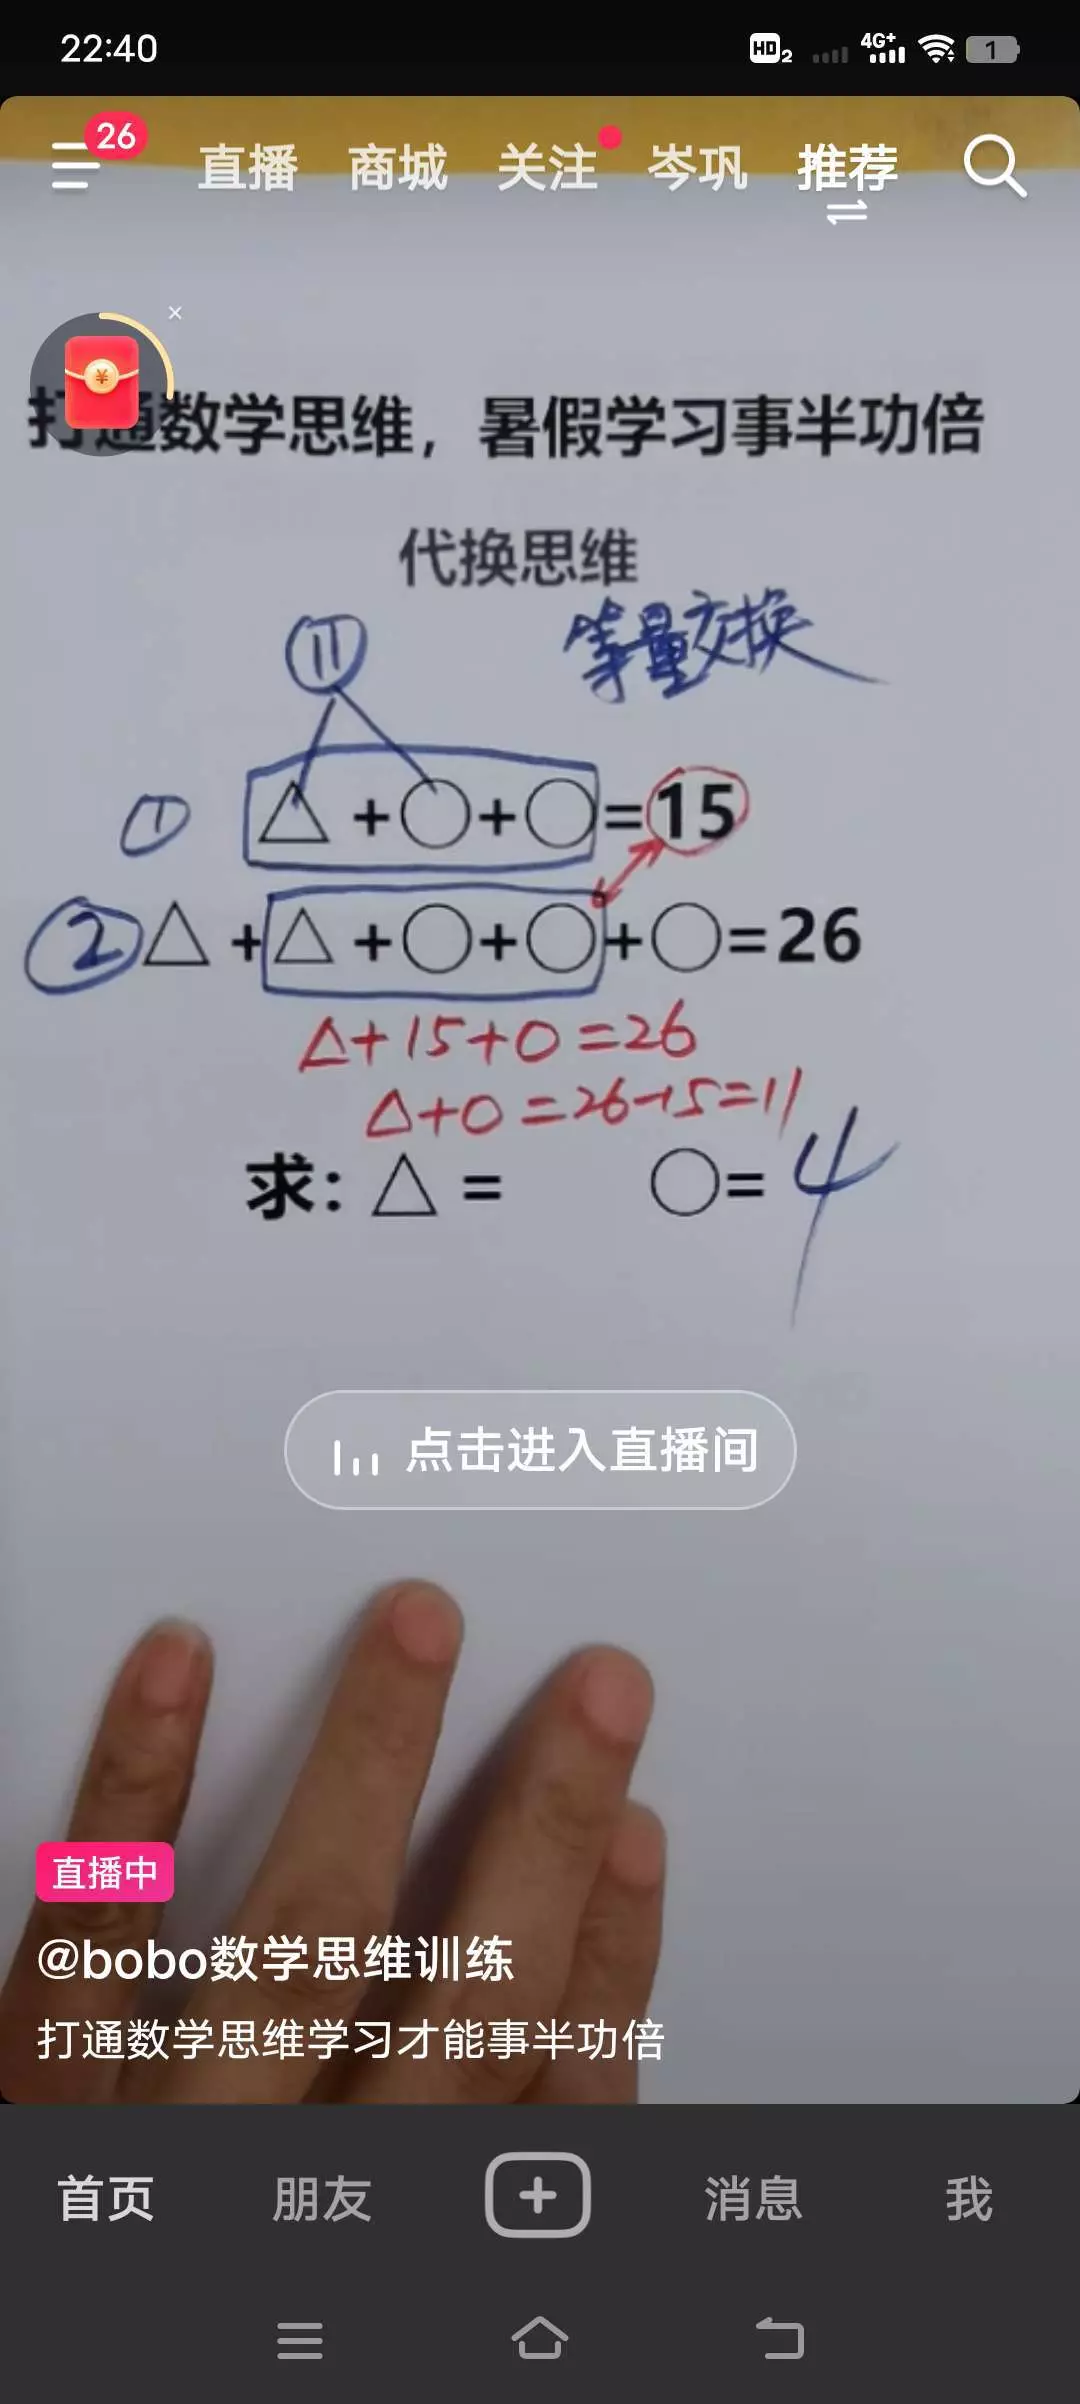 22:40
HD2 4G+ 1
26
直播 商城 关注 岑巩 推荐
打通数学思维，暑假学习事半功倍
代换思维
等量交换
11
① △+○+○=15
② △+△+○+○+○=26
△+15+○=26
△+○=26-15=11
求：△= ○=4
点击进入直播间
直播中
@bobo数学思维训练
打通数学思维学习才能事半功倍
首页 朋友 消息 我